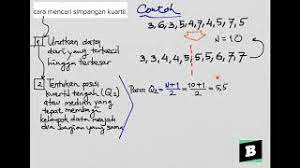 cara mencari simpangan kuartil
Contoh
3, 6, 3, 5, 4, 7, 4, 5, 7, 5
n = 10
1 Urutkan data
dari yang terkecil
hingga terbesar
3, 3, 4, 4, 5, 5, 5, 6, 7, 7
2 Tentukan posisi
kuartil tengah (Q2)
atau median yang
tepat membagi
kelompok data menjadi
dua bagian yang sama
Posisi Q2 = n+1/2 = 10+1/2 = 5,5
B